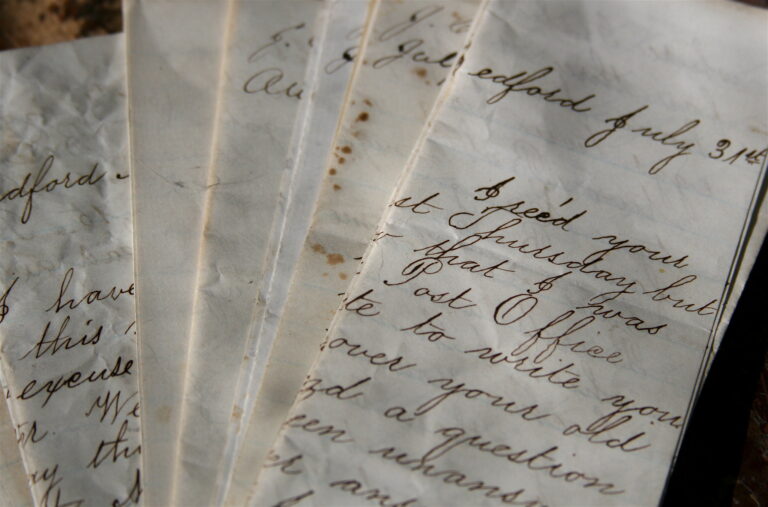 dford
I have
this
excuse
We
Au
July
edford July 31st
I rec'd your
st Thursday but
that I was
Post Office
te to write you
over your old
d a question
een unansw
er an